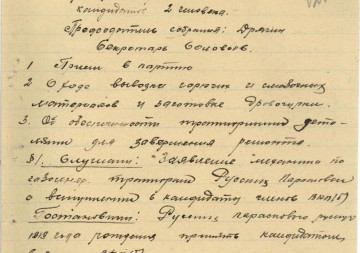 кандидатов 2 человека.
Председатель собрания: Дрягин
Секретарь Соловьев.
1 Прием в партию
2 О ходе вывозки горючих и смазочных
материалов и заготовке дровочурки.
3. Об обеспеченности тракторными дета-
лями для завершения ремонта.
§1. Слушали: Заявление механика по
тракторам Русских
о вступлении в кандидаты членов ВКП(б)
Постановили: Русских
1919 года рождения принять кандидатом